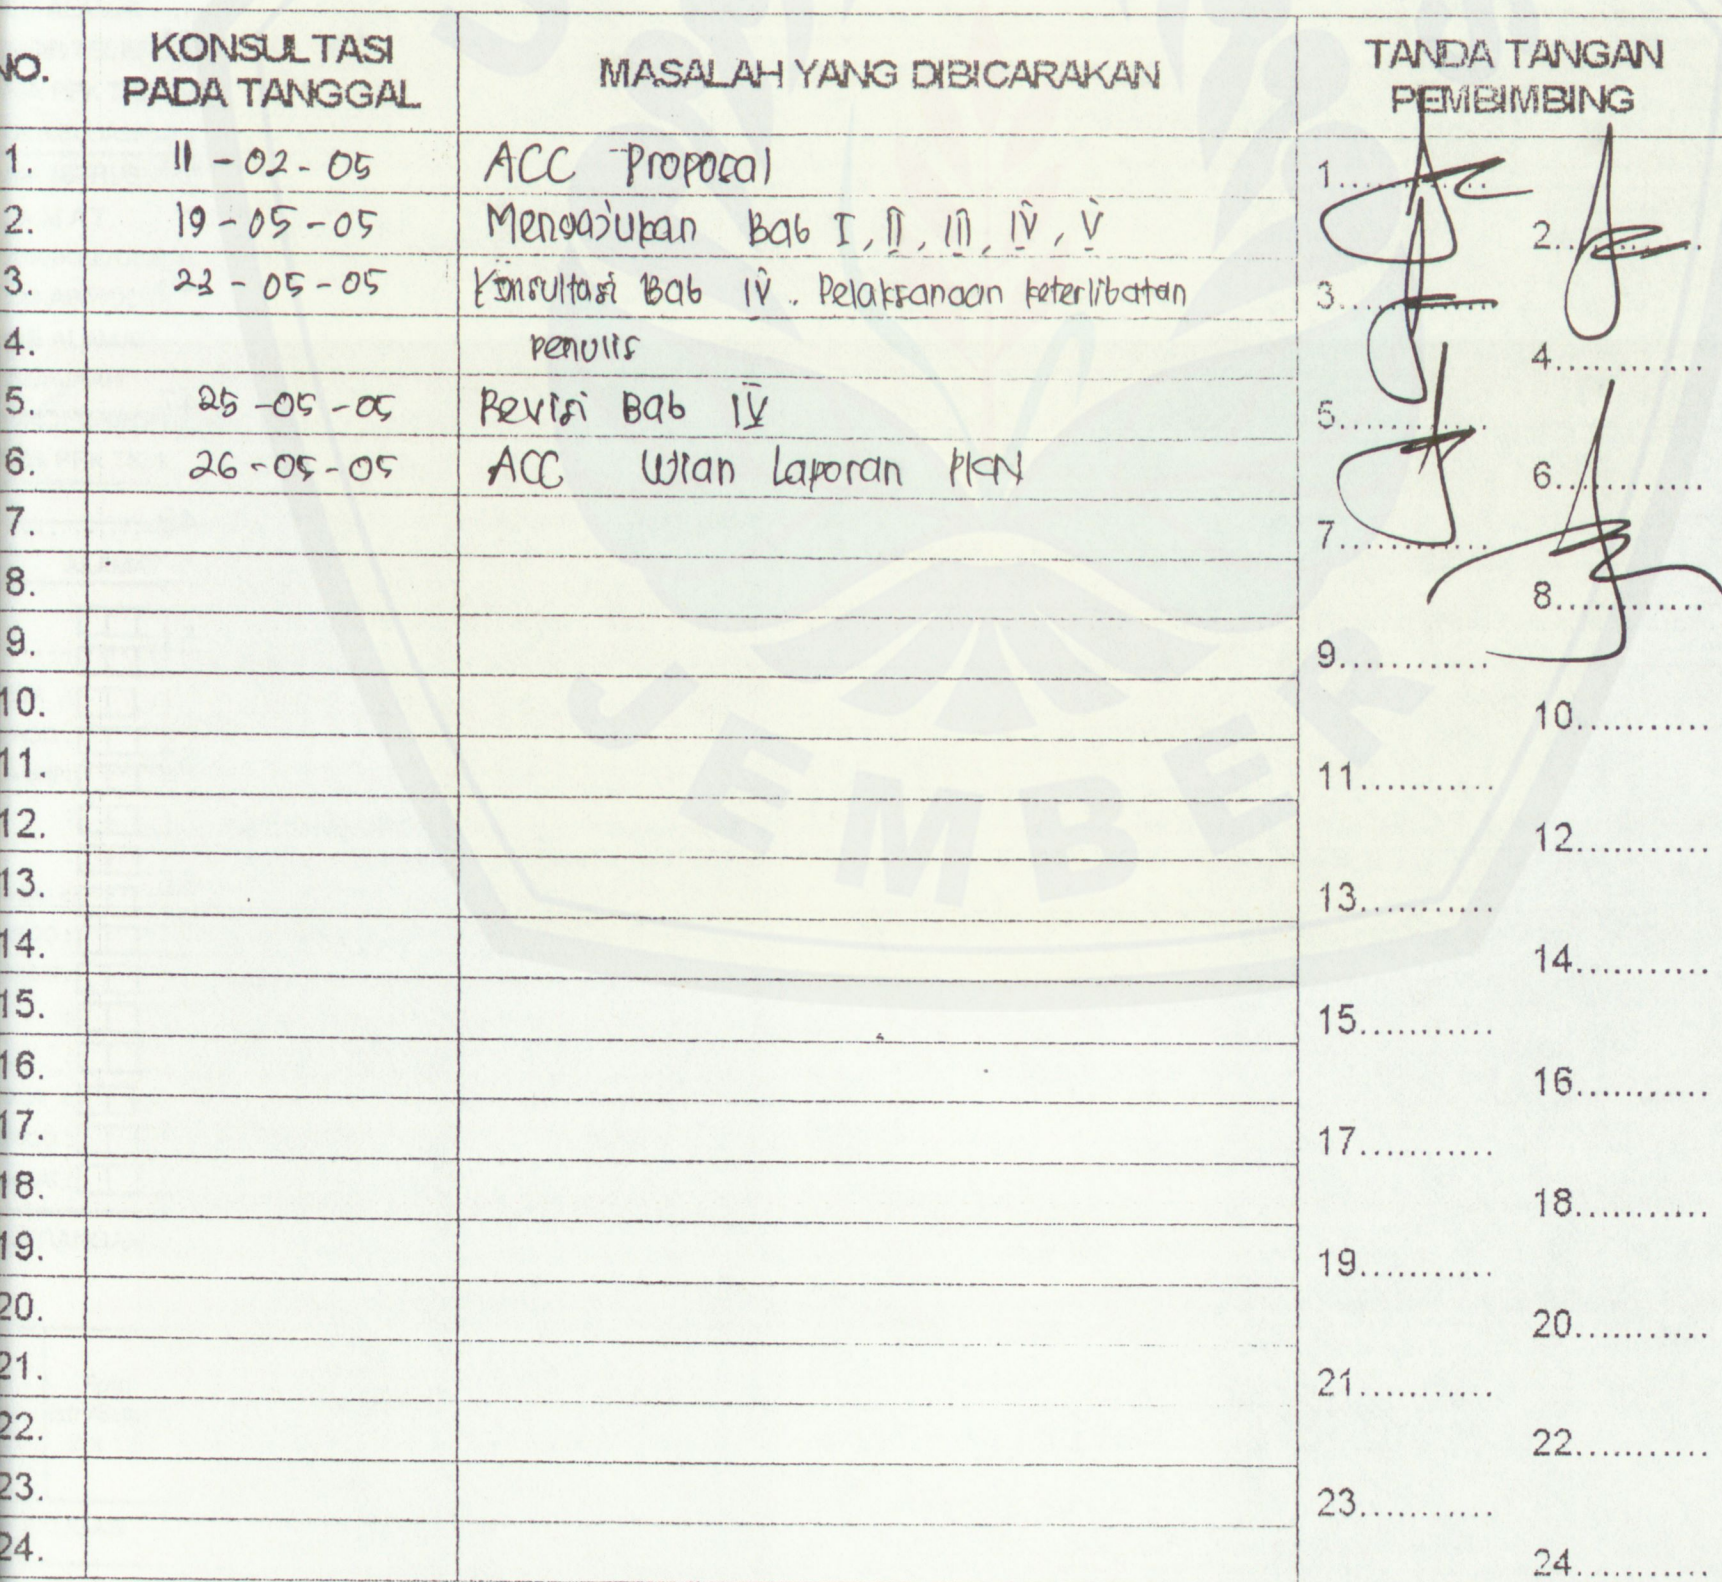 NO. KONSULTASI PADA TANGGAL MASALAH YANG DIBICARAKAN TANDA TANGAN PEMBIMBING
1. 11 - 02 - 05 ACC Proposal 1............
2. 19 - 05 - 05 Mengajukan Bab I, II, III, IV, V 2............
3. 23 - 05 - 05 Konsultasi Bab IV. Pelaksanaan keterlibatan 3............
4. penulis 4............
5. 25 - 05 - 05 Revisi Bab IV 5............
6. 26 - 05 - 05 ACC Ujian Laporan PKN 6............
7. 7............
8. 8............
9. 9............
10. 10...........
11. 11...........
12. 12...........
13. 13...........
14. 14...........
15. 15...........
16. 16...........
17. 17...........
18. 18...........
19. 19...........
20. 20...........
21. 21...........
22. 22...........
23. 23...........
24. 24...........
JEMBER